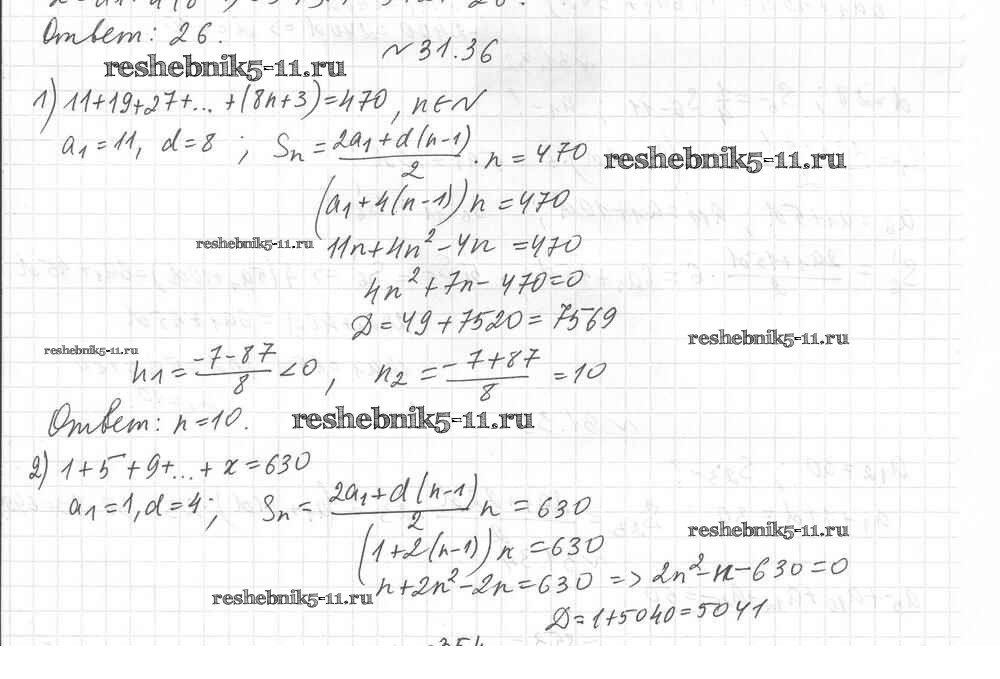 Ответ: 26.
№31.36
reshebnik5-11.ru
1) 11+19+27+...+(8n+3)=470, n∈N
a₁=11, d=8 ; Sₙ = (2a₁+d(n-1))/2 · n = 470
reshebnik5-11.ru
(a₁+4(n-1))n=470
reshebnik5-11.ru
11n+4n²-4n =470
4n²+7n-470=0
D=49+7520=7569
reshebnik5-11.ru
reshebnik5-11.ru
n₁ = (-7-87)/8 <0, n₂ = (-7+87)/8 =10
Ответ: n=10.
reshebnik5-11.ru
2) 1+5+9+...+x=630
a₁=1, d=4; Sₙ= (2a₁+d(n-1))/2 n = 630
reshebnik5-11.ru
(1+2(n-1))n =630
n+2n²-2n=630 => 2n²-n-630=0
reshebnik5-11.ru
D=1+5040=5041